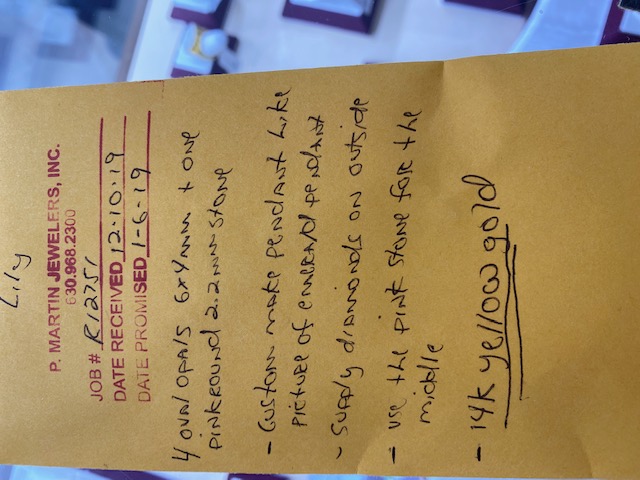 Lily
P. MARTIN JEWELERS, INC.
630.968.2300
JOB # R12751
DATE RECEIVED 12.10.19
DATE PROMISED 1-6-19
4 oval opals 6x4mm + one
pink round 2.2mm stone
- Custom make pendant like
picture of emerald pendant
- Supply diamonds on outside
- use the pink stone for the
middle
- 14k yellow gold